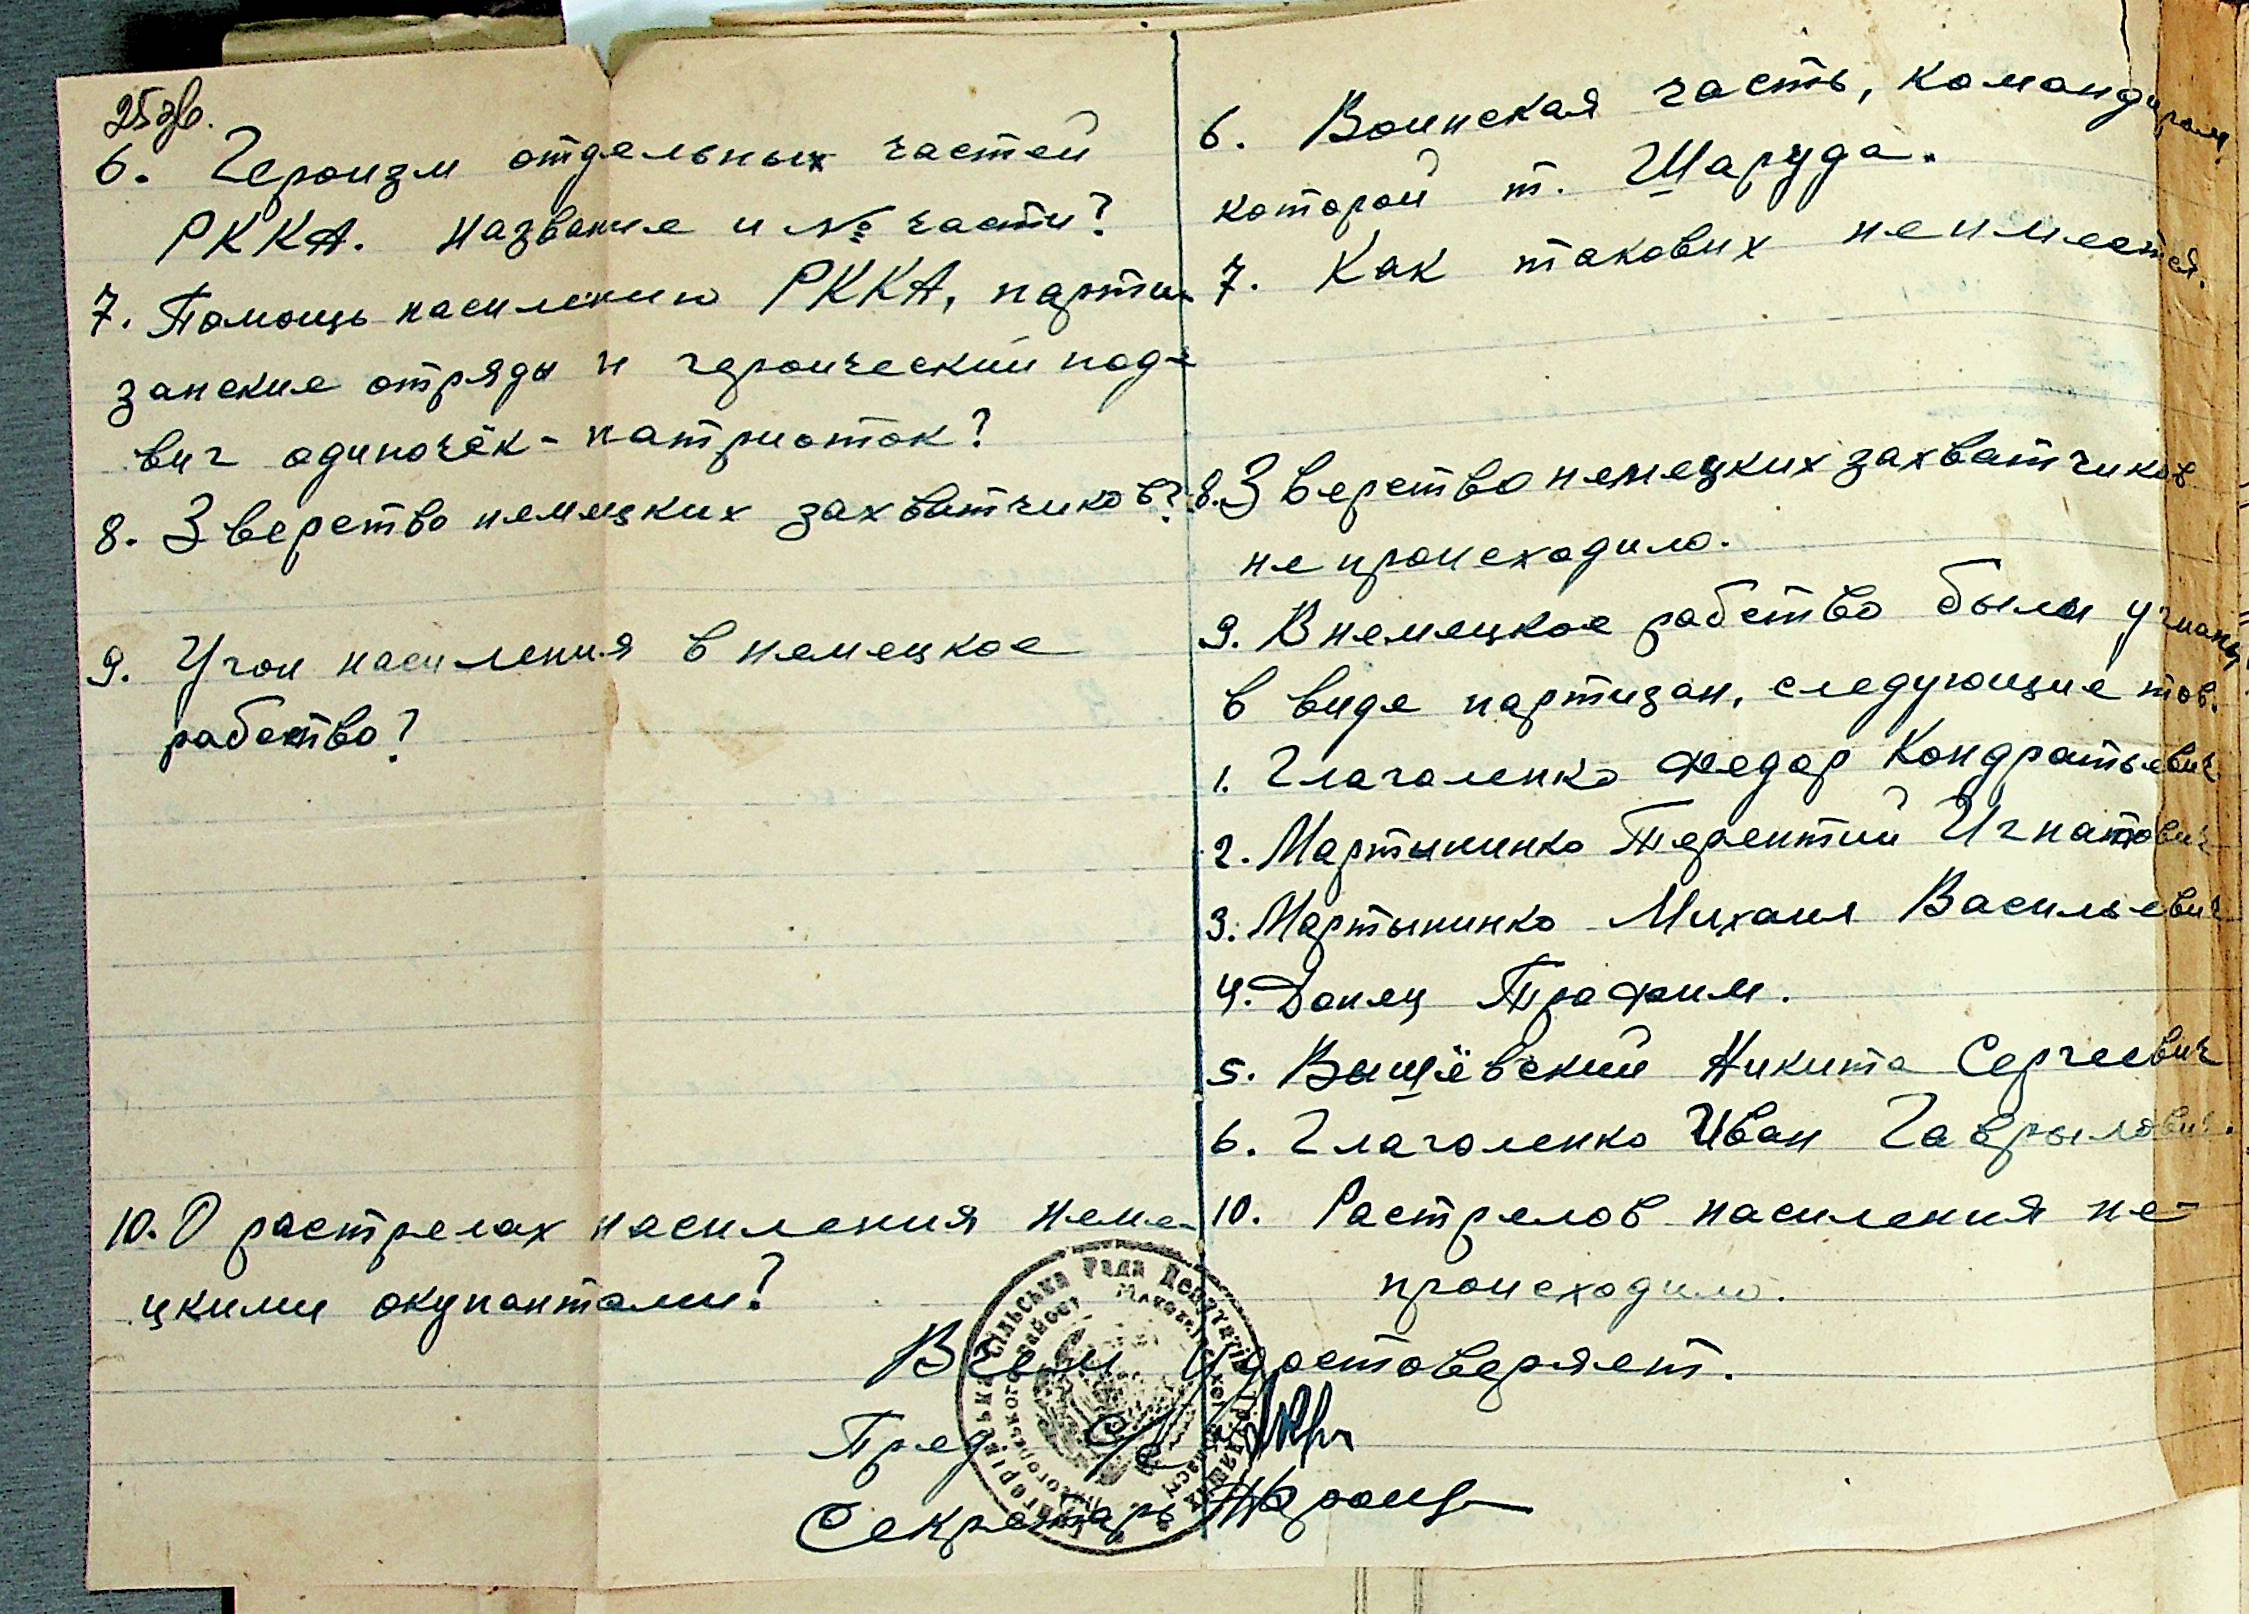 25зв.
6. Героизм отдельных частей
РККА. Название и № части?
7. Помощь насилению РККА, парти-
занские отряды и героический под-
виг одиночек-патриоток?
8. Зверство немецких захватчиков?
9. Угон насиления в немецкое
рабство?
10. О растрелах насиления неме-
цкими окупантами?
6. Воинская часть, командиром
которой т. Шаруда.
7. Как такових неимеется.
8. Зверство немецких захватчиков
не происходило.
9. В немецкое рабство были угнаны
в виде партизан, следующие тов.
1. Глаголенко Федор Кондратьевич
2. Мартыненко Терентий Игнатович
3. Мартыненко Михаил Васильевич
4. Донец Трофим.
5. Выщёвский Никита Сергеевич
6. Глаголенко Иван Гаврылович.
10. Растрелов насиления не-
происходило.
В чем удостоверяет.
Пред. С/С
Секретарь
Сільська Рада Депутатів